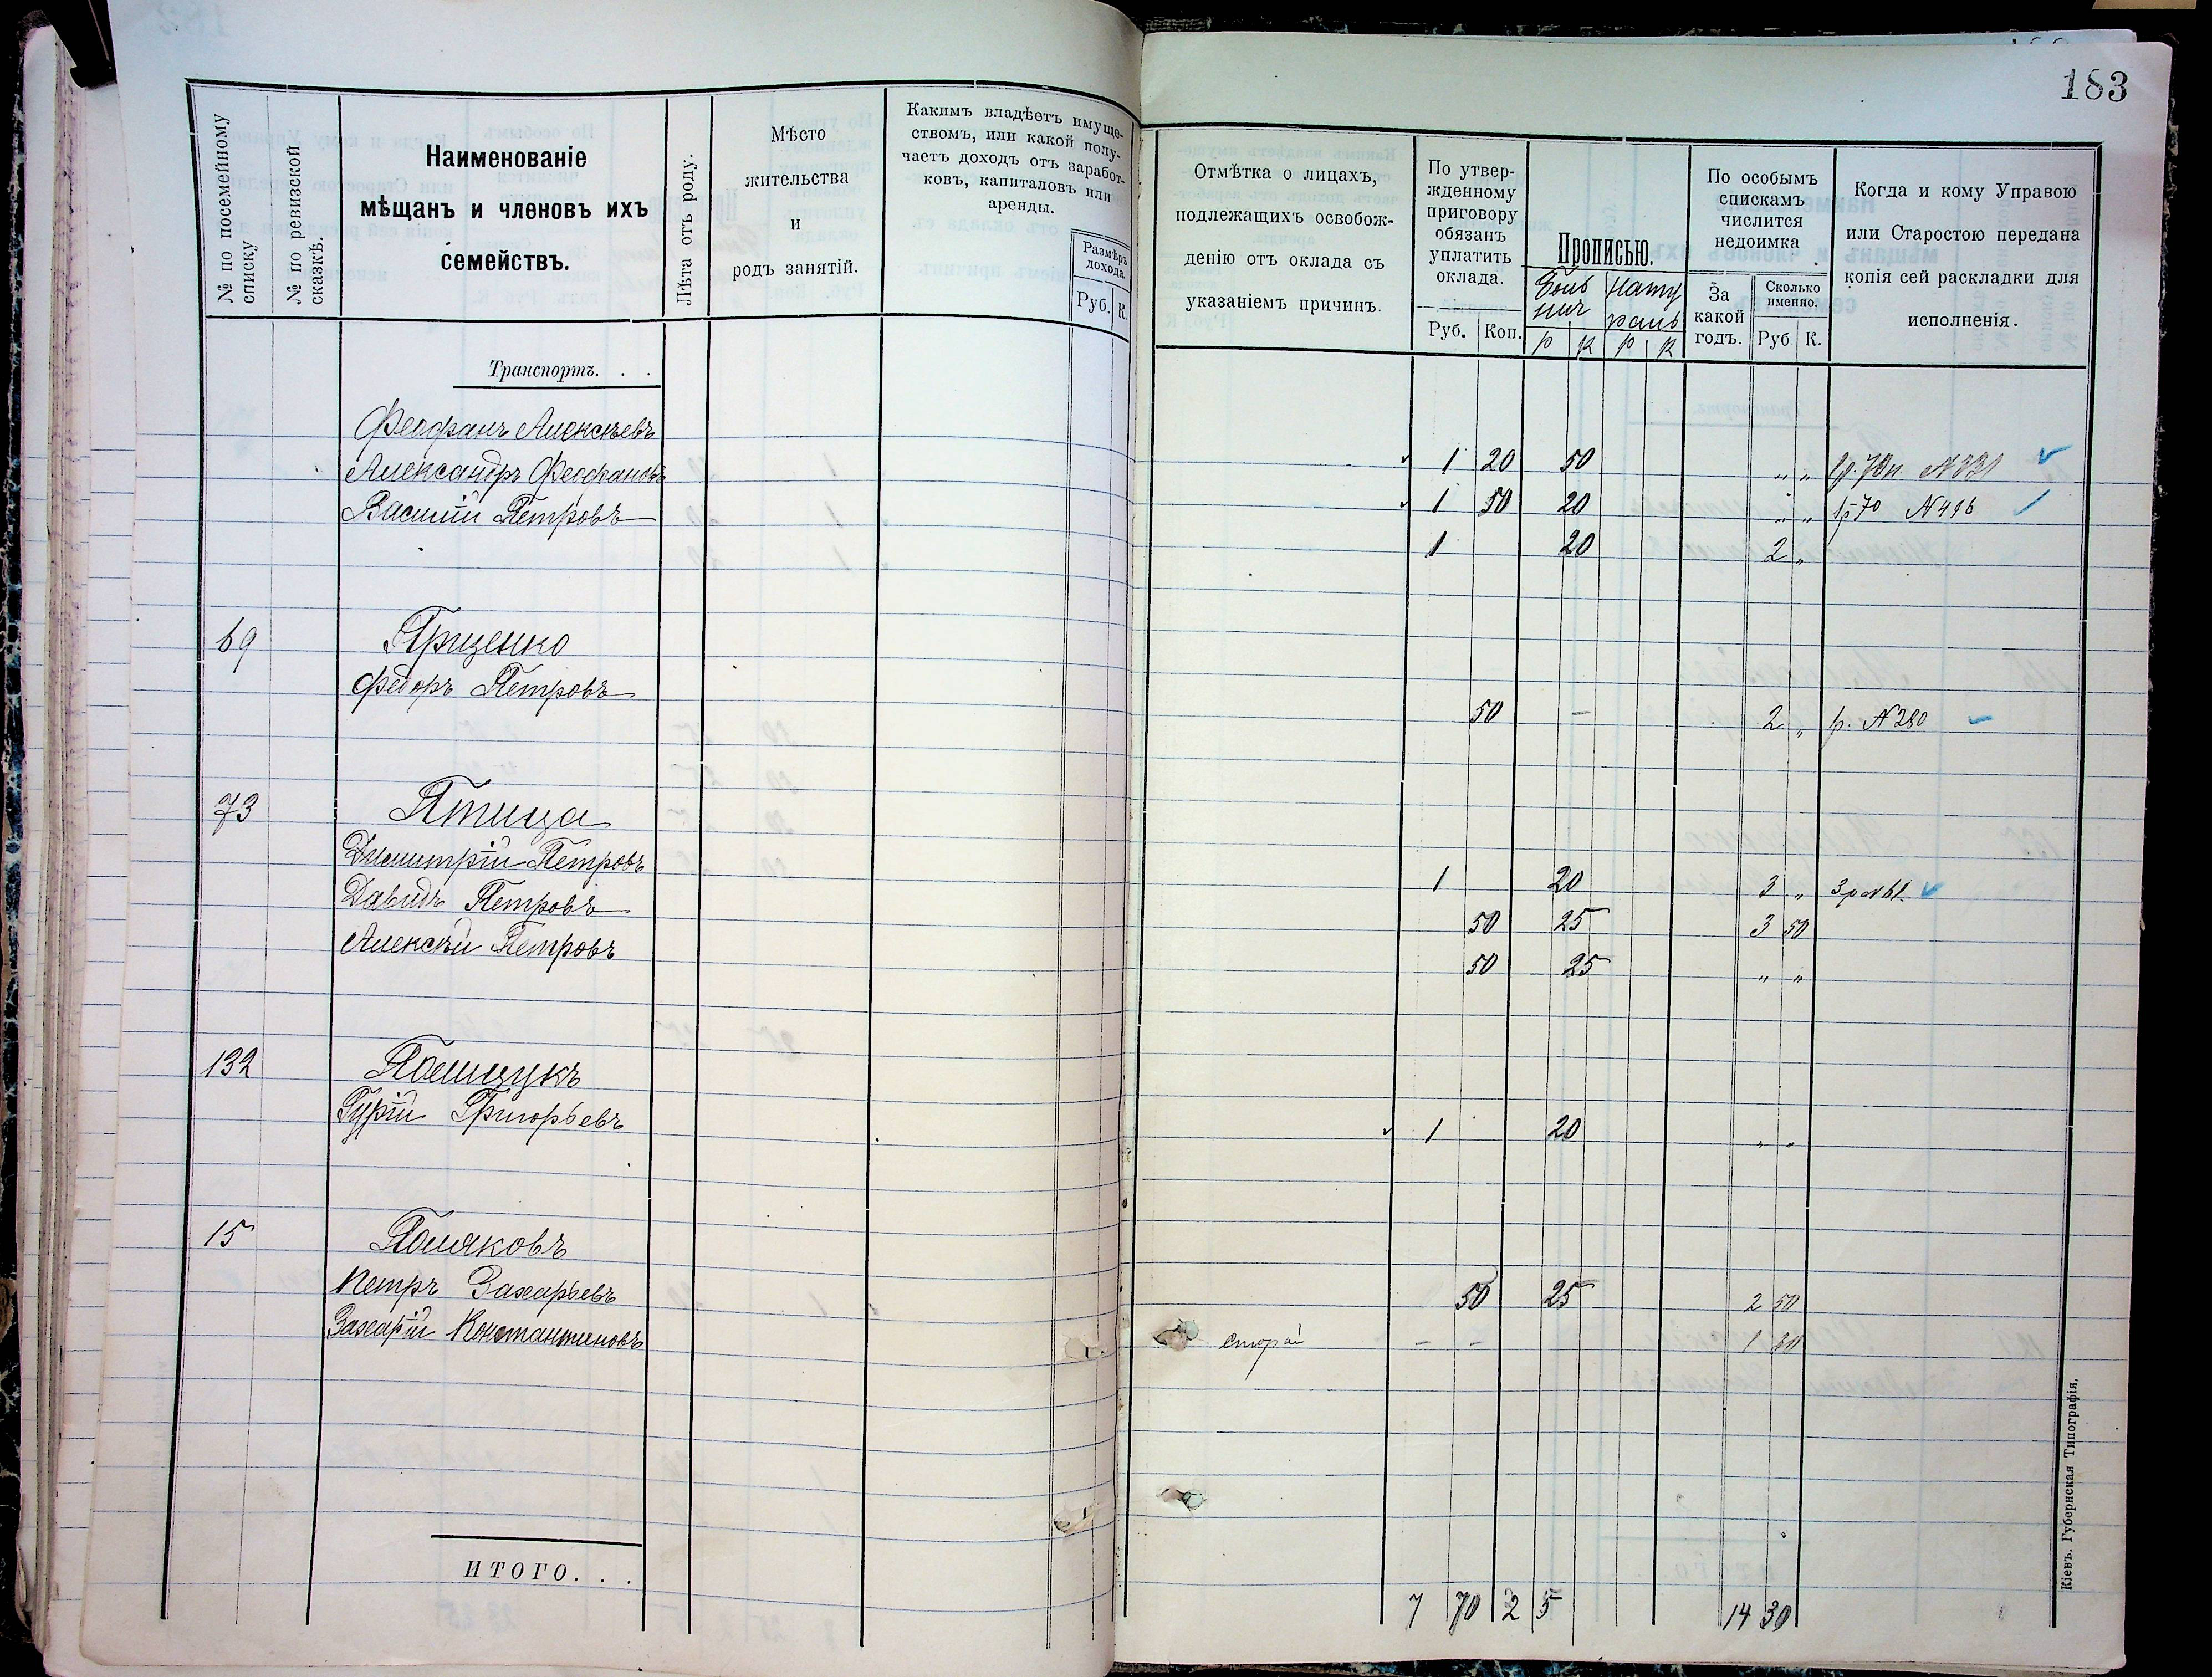 183
№ по посемейному списку
№ по ревизской сказкѣ.
Наименованіе
мѣщанъ и членовъ ихъ
семействъ.
Лѣта отъ роду.
Мѣсто
жительства
и
родъ занятій.
Какимъ владѣетъ имуще-
ствомъ, или какой полу-
чаетъ доходъ отъ заработ-
ковъ, капиталовъ или
аренды.
Размѣръ
дохода.
Руб. К.
Отмѣтка о лицахъ,
подлежащихъ освобож-
денію отъ оклада съ
указаніемъ причинъ.
По утвер-
жденному
приговору
обязанъ
уплатить
оклада.
Руб. Коп.
Прописью.
Боль
нич
Нату
раль
р к р к
По особымъ
спискамъ
числится
недоимка
За
какой
годъ.
Сколько
именно.
Руб К.
Когда и кому Управою
или Старостою передана
копія сей раскладки для
исполненія.
Транспортъ. . .
Феофанъ Алексѣевъ 1 20 50 " "
Александръ Феофановъ 1 50 20 " " 1р70 N496
Василій Петровъ 1 20 2 "
69 Приценко
Федоръ Петровъ 50 — 2 " р. N280
73 Птица
Димитрій Петровъ 1 20 3 "
Давидъ Петровъ 50 25 3 50
Алексѣй Петровъ 50 25 " "
132 Полищукъ
Гурій Григорьевъ 1 20 " "
15 Поляковъ
Петръ Захарьевъ 50 25 2 50
Захарій Константиновъ - - 1
ИТОГО. . .
7 70 2 5 14 30
Кіевъ. Губернская Типографія.